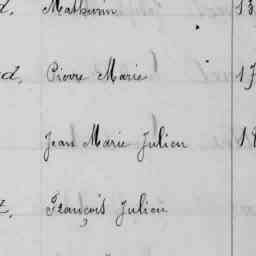 d, Mathurin 13
ed, Pierre Marie 17
Jean Marie Julien 18
t, François Julien